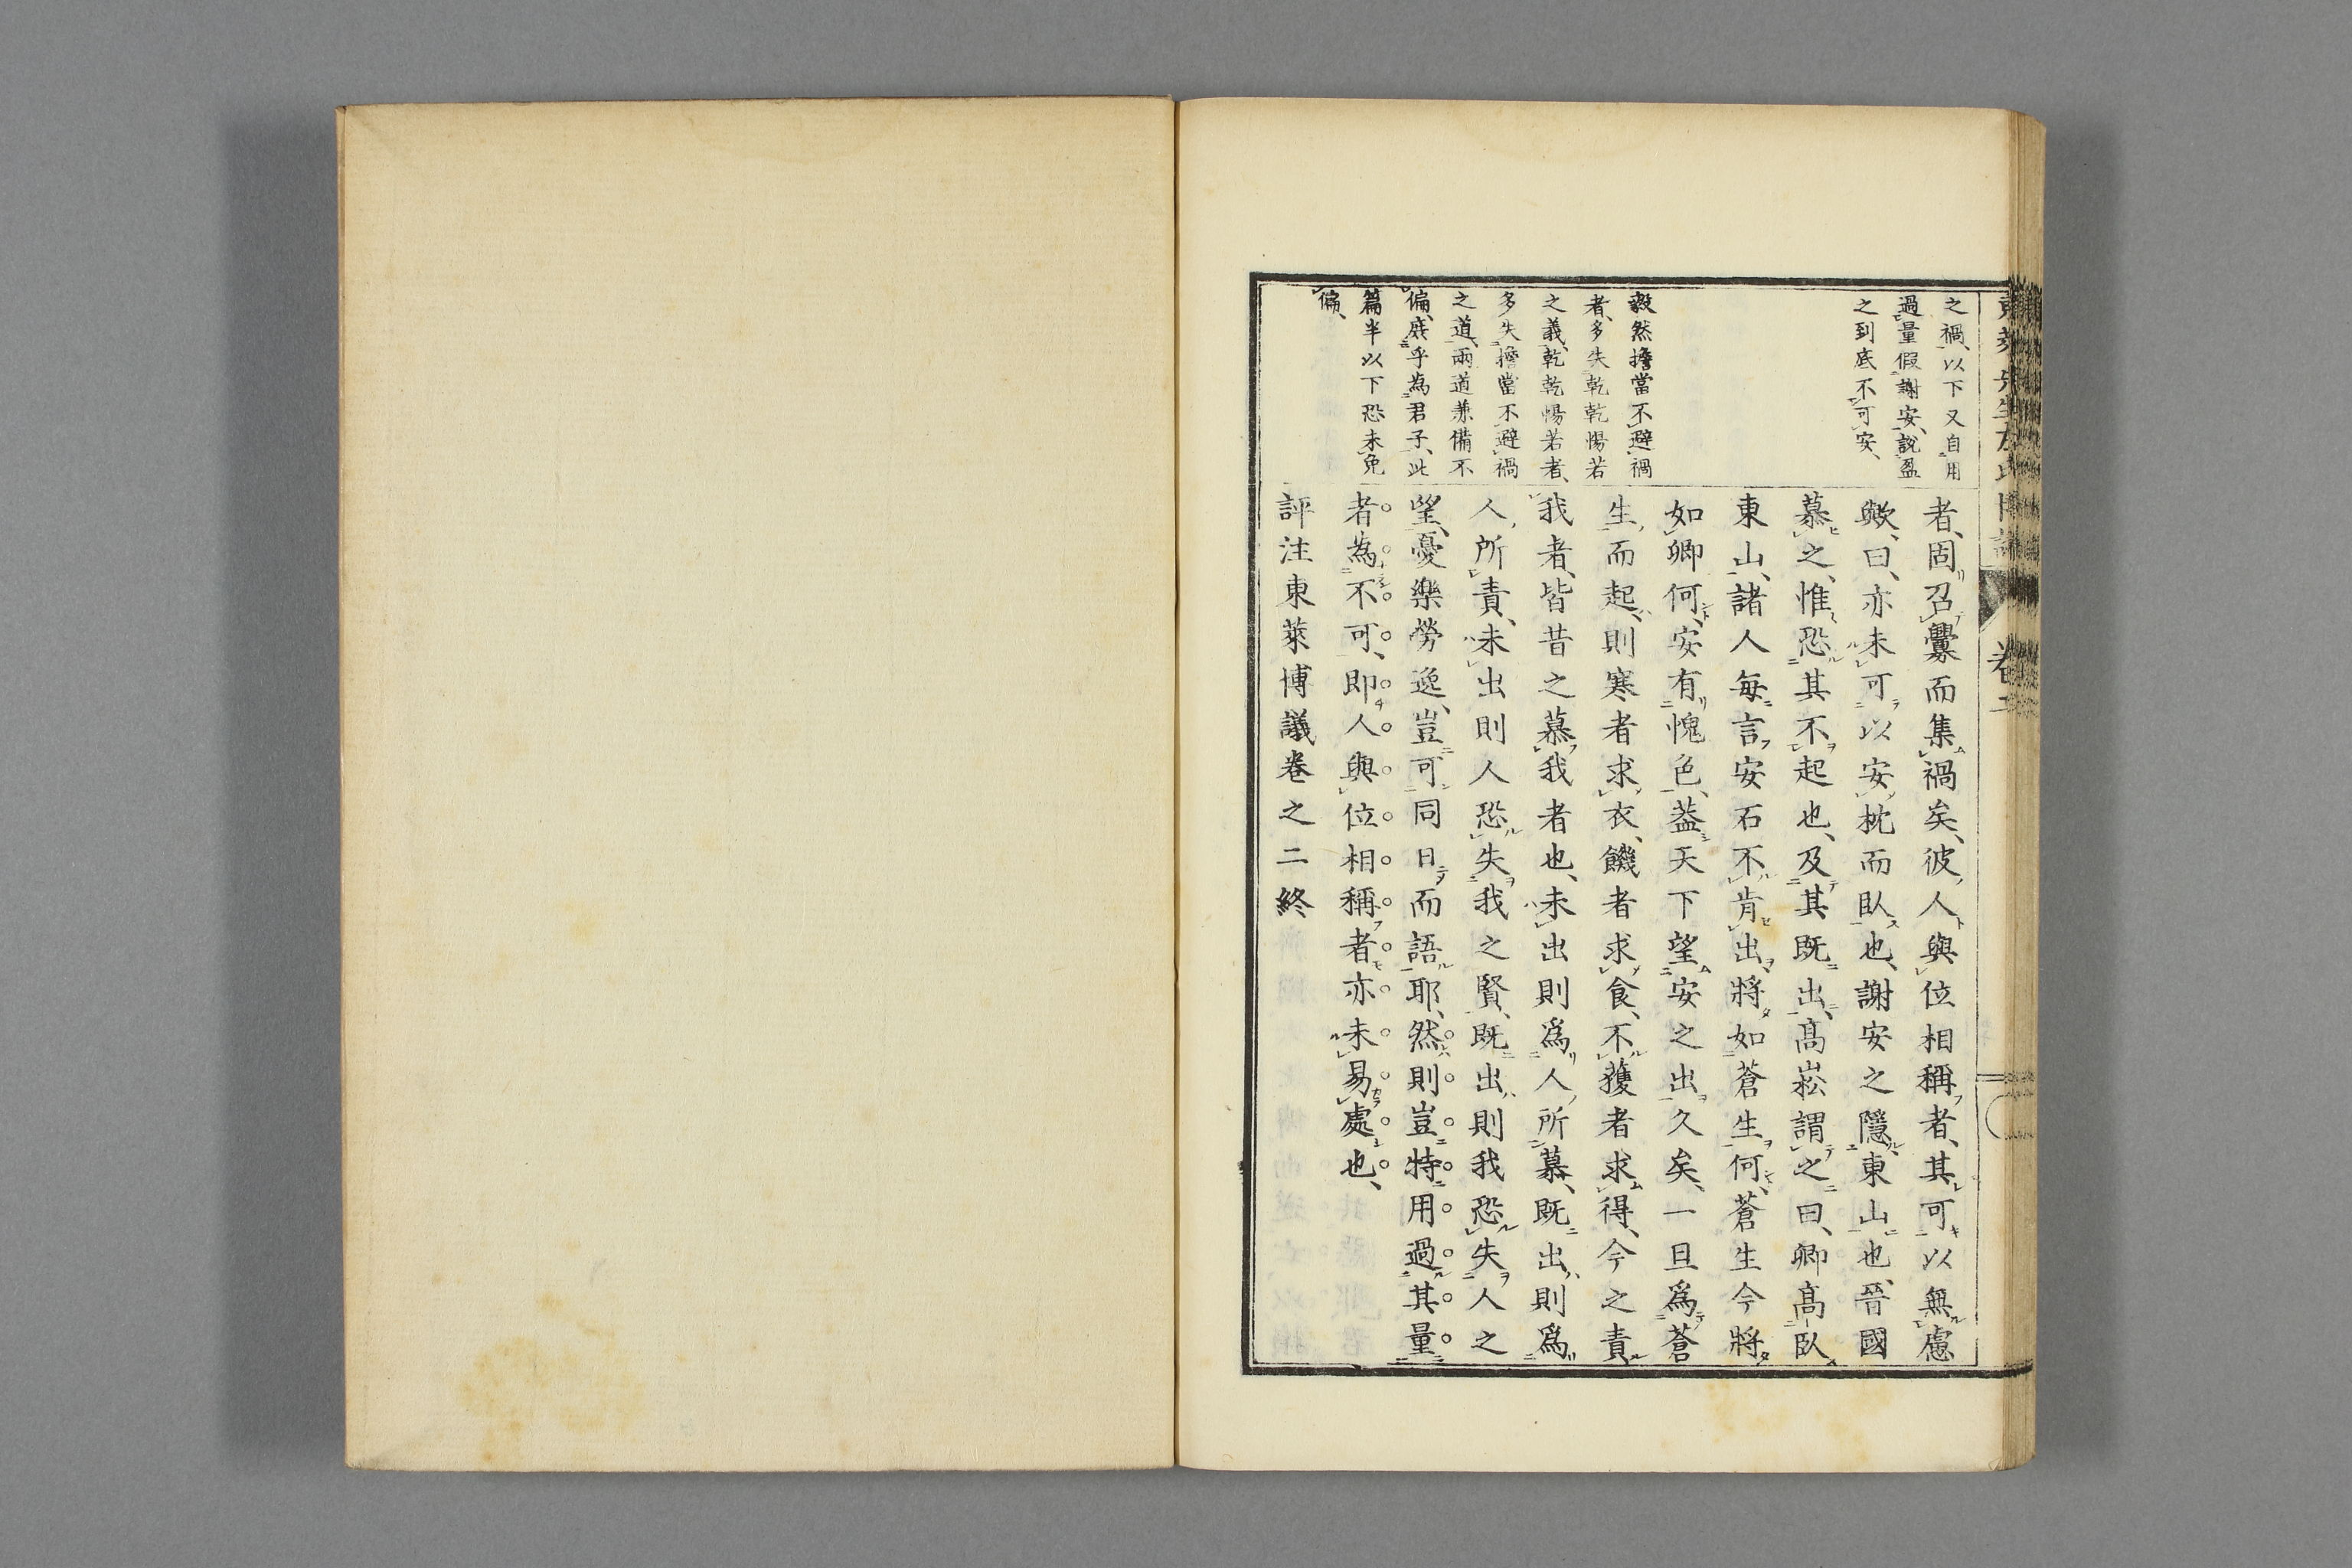 之禍、以下又自用
過量假謝安、說盈
之到底不可安、
毅然擔當不避禍
者、多失乾乾惕若
之義、乾乾惕若者、
多失擔當不避禍
之道、兩道兼備不
偏、庶乎為君子、此
篇半以下恐未免
偏、
者、固召釁而集禍矣、彼人與位相稱者、其可以無慮
歟、曰、亦未可以安枕而臥也、謝安之隱東山也、晉國
慕之、惟恐其不起也、及其既出、高崧謂之曰、卿高臥
東山、諸人每言安石不肯出、將如蒼生何、蒼生今將
如卿何、安有愧色、蓋天下望安之出久矣、一旦爲蒼
生而起、則寒者求衣、饑者求食、不獲者求得、今之責
我者、皆昔之慕我者也、未出則爲人所慕、既出則爲
人所責、未出則人恐失我之賢、既出則我恐失人之
望、憂樂勞逸、豈可同日而語耶、然則豈特用過其量
者為不可、即人與位相稱者亦未易處也、
評注東萊博議卷之二終